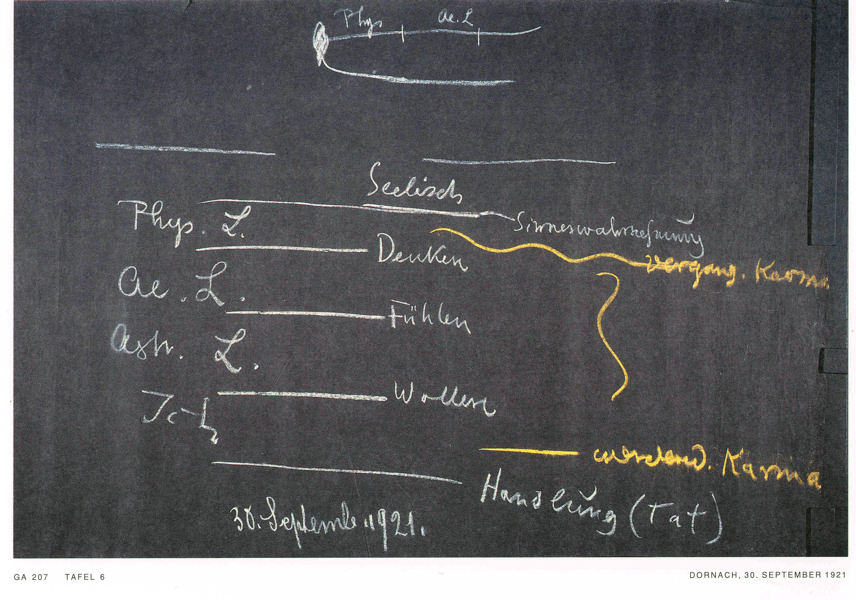 Phys Ae. L
Seelisch
Phys. L. Sinneswahrnehmung
Denken vergang. Karma
Ae. L.
Fühlen
Astr. L.
Wollen
Ich
werdend. Karma
Handlung (Tat)
30. September 1921.
GA 207 TAFEL 6 DORNACH, 30. SEPTEMBER 1921